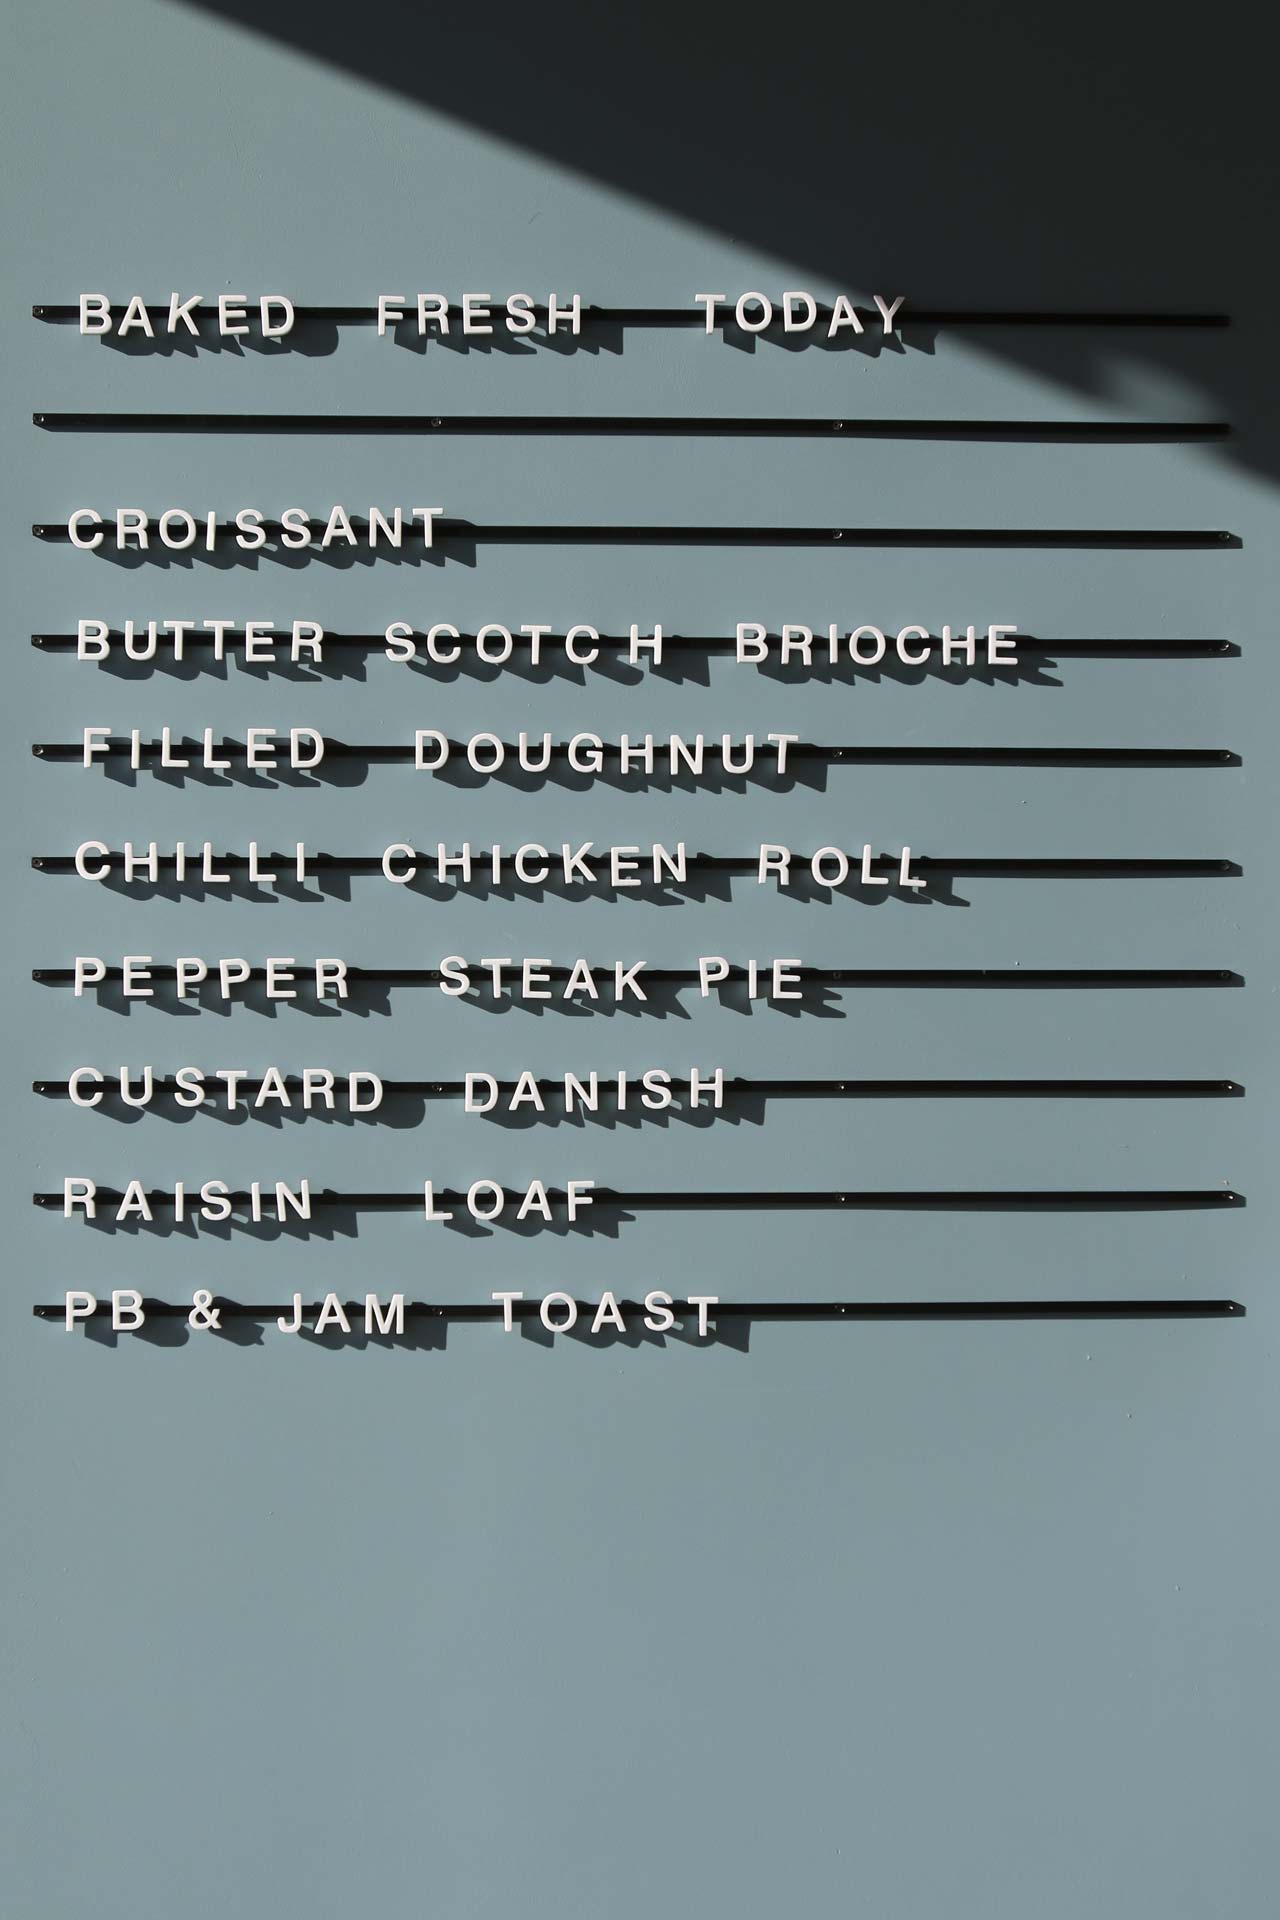 BAKED FRESH TODAY
CROISSANT
BUTTER SCOTCH BRIOCHE
FILLED DOUGHNUT
CHILLI CHICKEN ROLL
PEPPER STEAK PIE
CUSTARD DANISH
RAISIN LOAF
PB & JAM TOAST